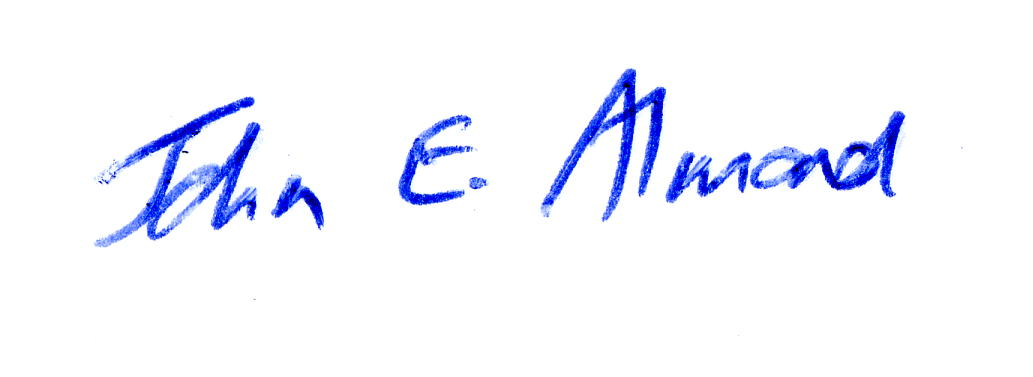 John E. Almond